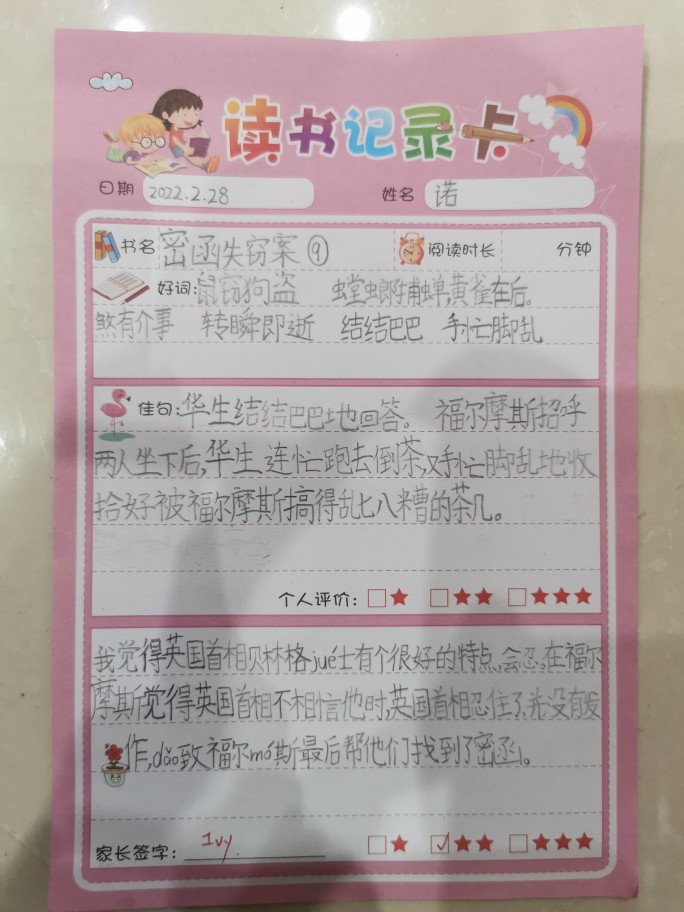 读书记录卡
日期 2022.2.28 姓名 诺
书名 密函失窃案⑨ 阅读时长 分钟
好词:鼠窃狗盗 螳螂捕蝉,黄雀在后。
煞有介事 转瞬即逝 结结巴巴 手忙脚乱
佳句:华生结结巴巴地回答。 福尔摩斯招呼
两人坐下后,华生连忙跑去倒茶,又手忙脚乱地收
拾好被福尔摩斯搞得乱七八糟的茶几。
个人评价: ★ ★★ ★★★
我觉得英国首相贝林格jué士有个很好的特点,会忍。在福尔
摩斯觉得英国首相不相信他时,英国首相忍住了,并没有发
作,dǎo致福尔mó斯最后帮他们找到了密函。
家长签字: Ivy. ★ ☑★★ ★★★